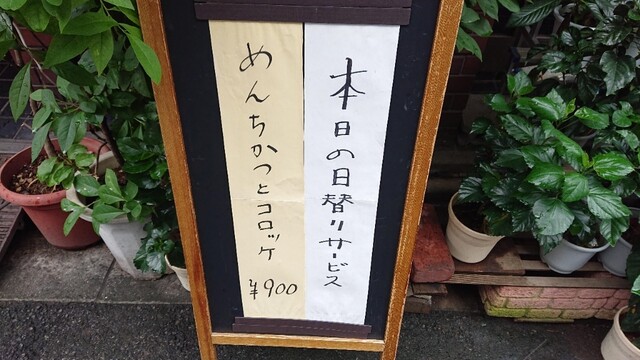 本日の日替りサービス
めんちかつとコロッケ
¥900